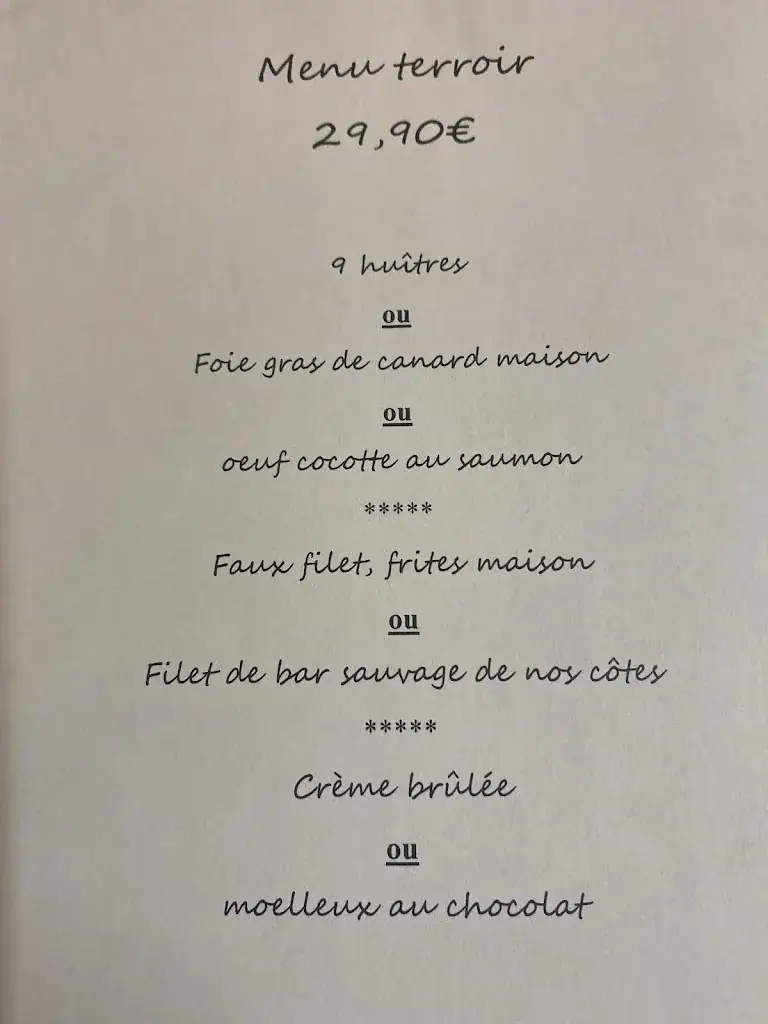 Menu terroir
29,90€
9 huîtres
ou
Foie gras de canard maison
ou
oeuf cocotte au saumon
*****
Faux filet, frites maison
ou
Filet de bar sauvage de nos côtes
*****
Crème brûlée
ou
moelleux au chocolat